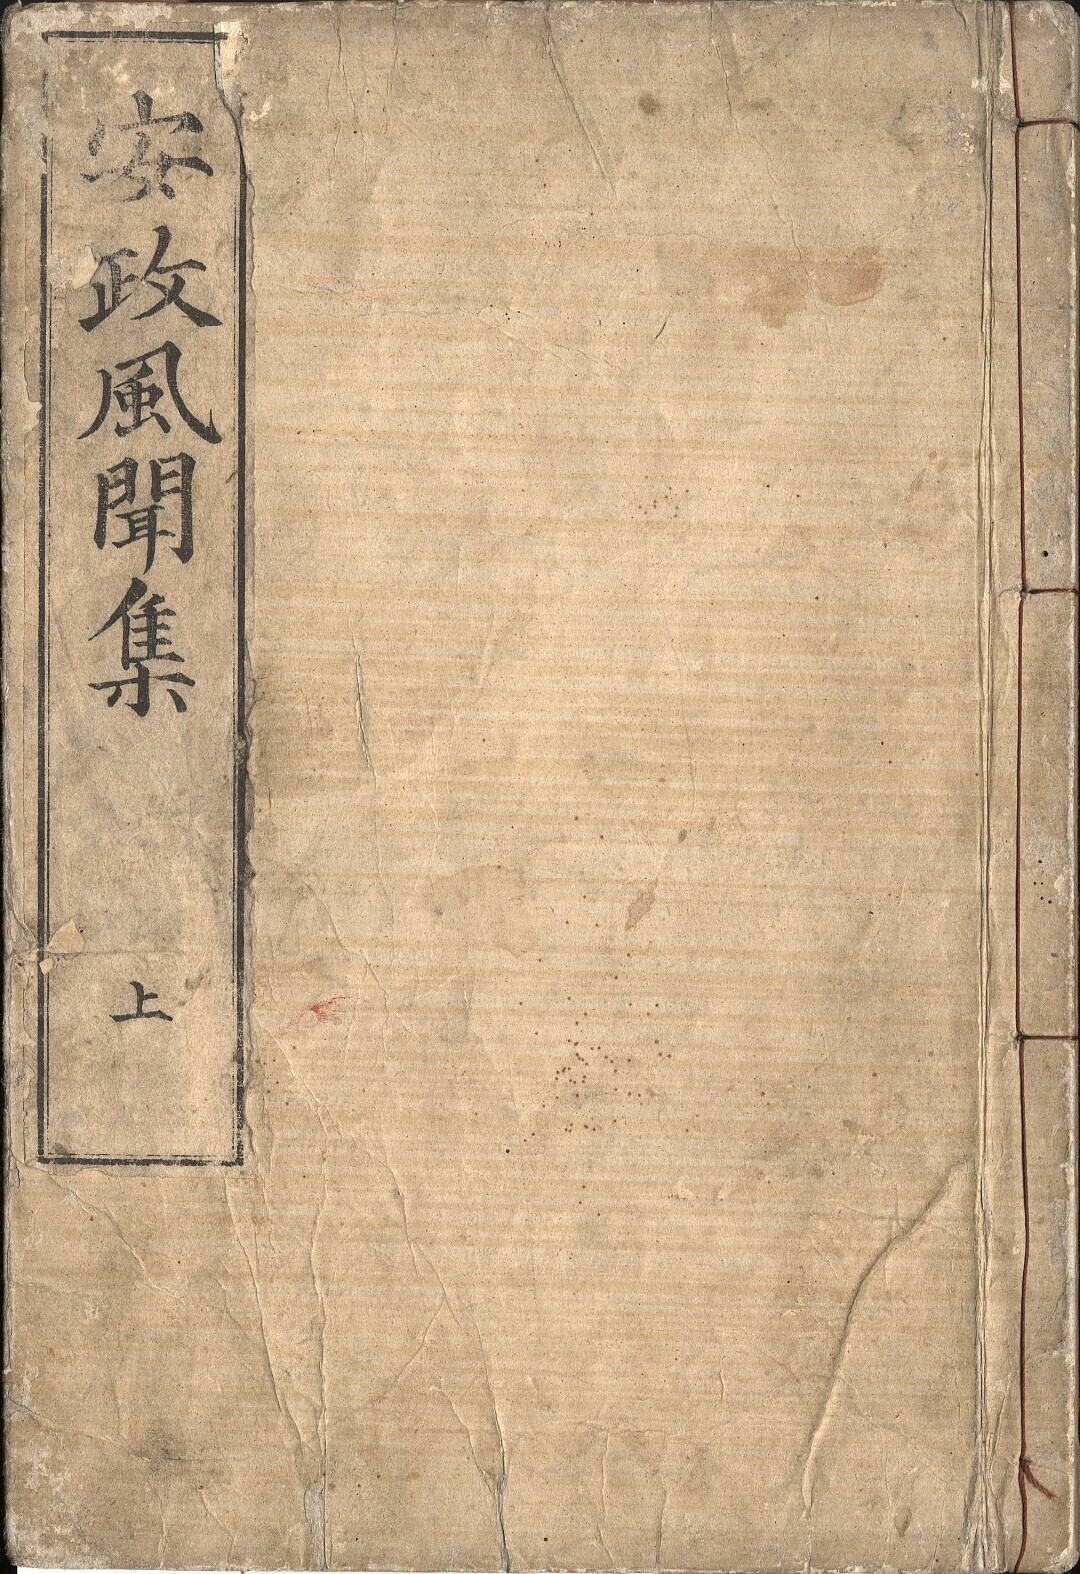 安政風聞集
上